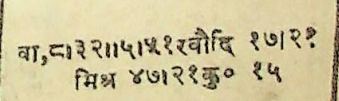 वा,८।३२।।५।५१रवौदि १७।२१
मिश्र ४७।२१कु० १५